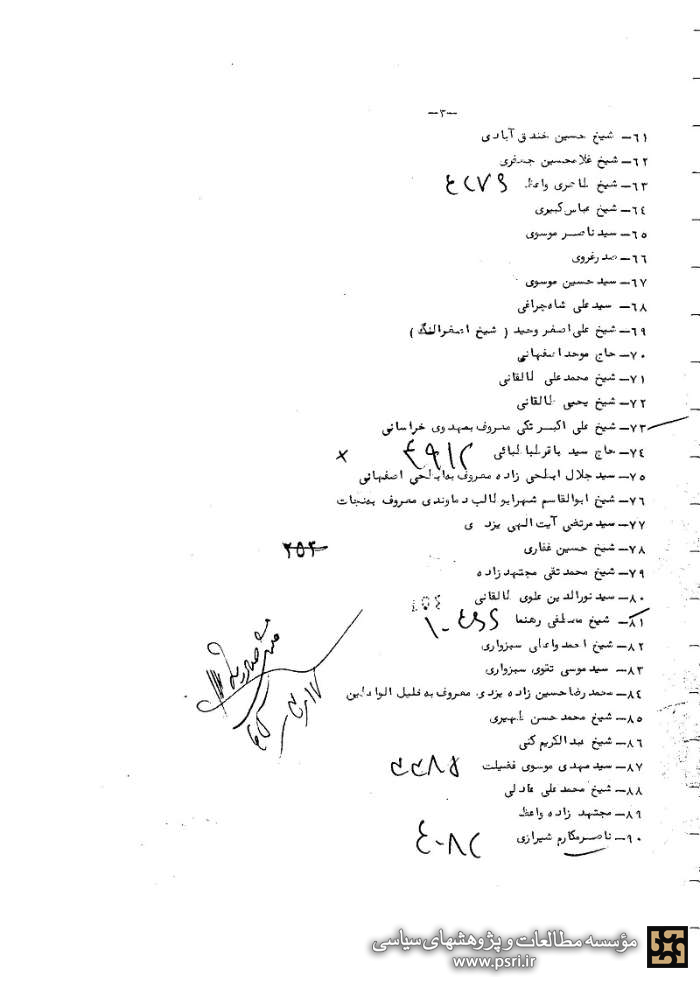 —۳—
۶۱— شیخ حسین خندق آبادی
۶۲— شیخ غلامحسین جعفری
۶۳— شیخ طاهری واعظ
۶۴— شیخ عباس کبیری
۶۵— سید ناصر موسوی
۶۶— صدر غروی
۶۷— سید حسین موسوی
۶۸— سید علی شاه‌چراغی
۶۹— شیخ علی اصغر وحید ( شیخ اصغر النگه )
۷۰— حاج موحد اصفهانی
۷۱— شیخ محمد علی طالقانی
۷۲— شیخ یحیی طالقانی
۷۳— شیخ علی اکبر تکی معروف بمهدوی خراسانی
۷۴— حاج سید باقر طباطبائی ×
۷۵— سید جلال ابطحی زاده معروف به‌ابطحی اصفهانی
۷۶— شیخ ابوالقاسم شهرابو طالب دماوندی معروف به‌نجات
۷۷— سید مرتضی آیت الهی یزدی
۷۸— شیخ حسین غفاری
۷۹— شیخ محمد تقی مجتهد زاده
۸۰— سید نورالدین علوی طالقانی
۸۱— شیخ مصطفی رهنما
۸۲— شیخ احمد واعظی سبزواری
۸۳— سید موسی تقوی سبزواری
۸۴— محمد رضا حسین زاده یزدی معروف به خلیل الواعظین
۸۵— شیخ محمد حسن ظهیری
۸۶— شیخ عبدالکریم کنی
۸۷— سید مهدی موسوی فضیلت
۸۸— شیخ محمد علی عادلی
۸۹— مجتهد زاده واعظ
۹۰— ناصر مکارم شیرازی
مؤسسه مطالعات و پژوهشهای سیاسی
www.psri.ir